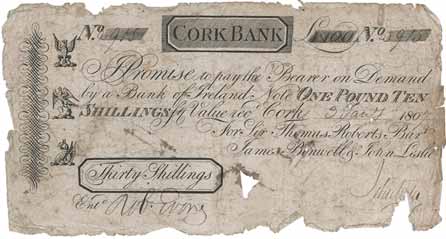 No. CORK BANK £1100 No.
I Promise to pay the Bearer on Demand
by a Bank of Ireland Note ONE POUND TEN
SHILLINGS for Value recd. Cork 180
For Sir Thomas Roberts Bart.
James Bonwell & John Leslie
Thirty Shillings
Entd.